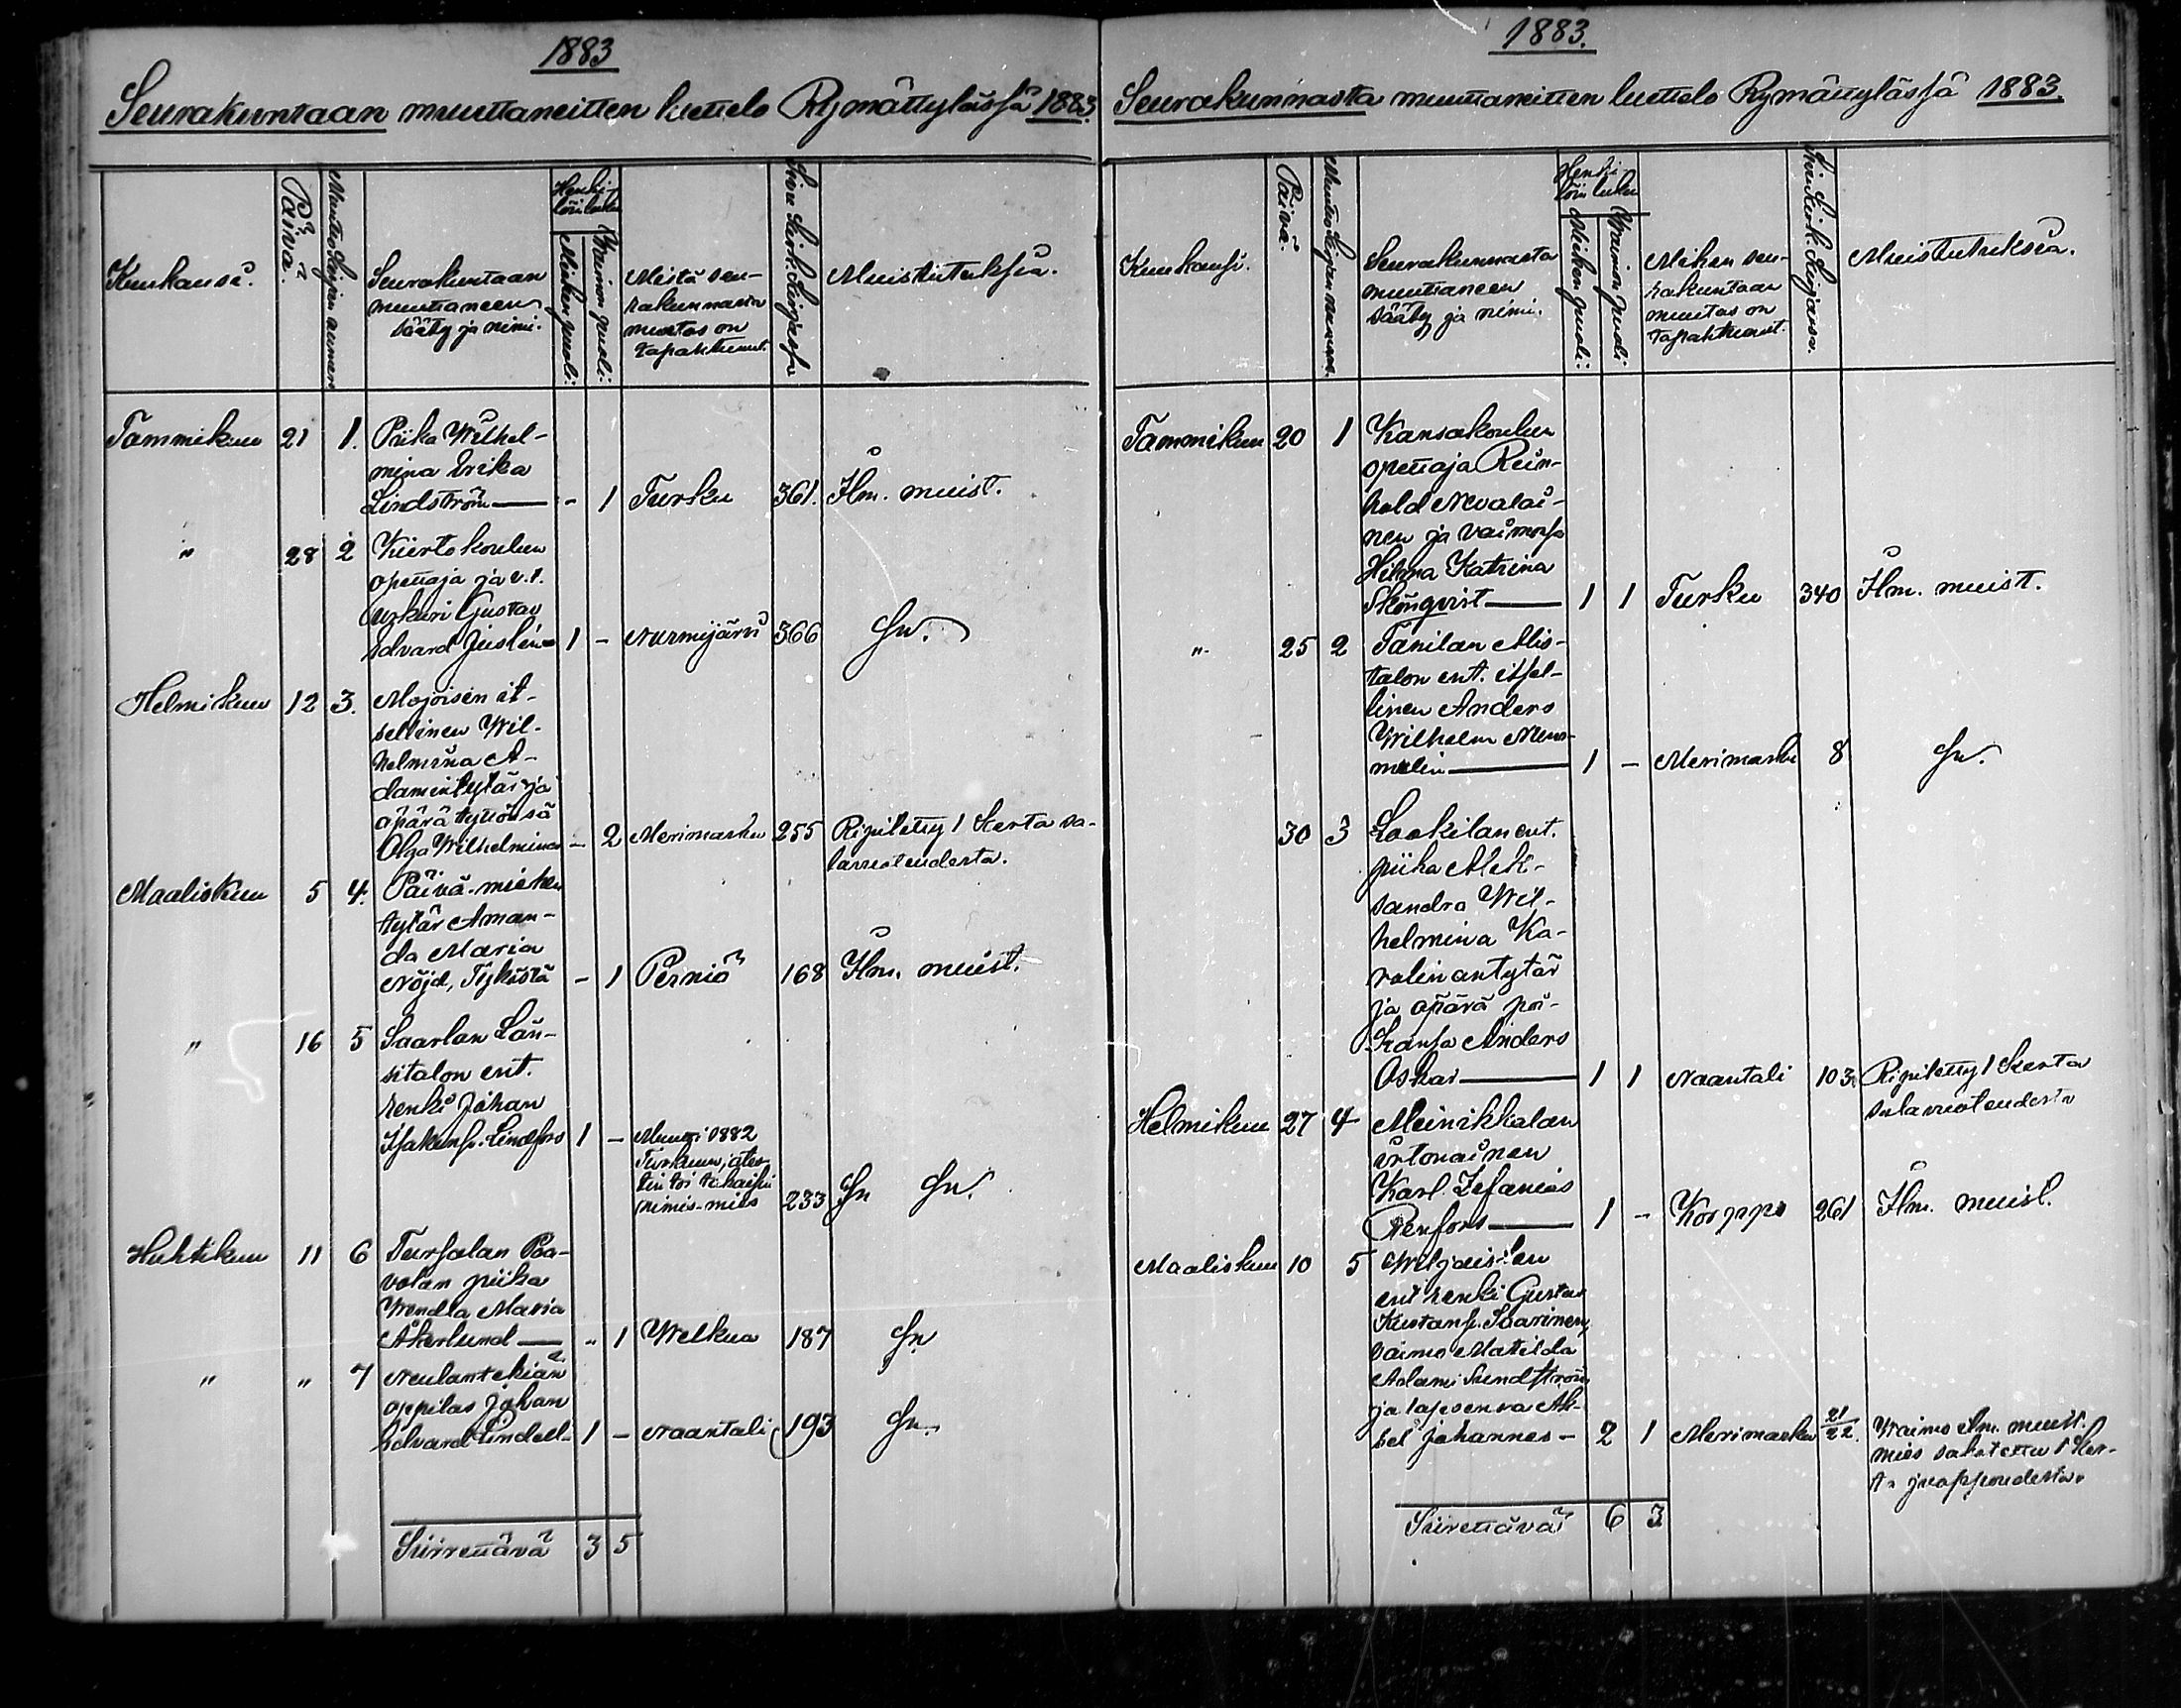 1883
Seurakuntaan muuttaneitten luettelo Rymättylässä 1883.
Kuukausi.
Päivä.
Muuttokirjan numero
Seurakuntaan
muuttaneen
sääty ja nimi.
Henki-
löin luku
Miehen puoli.
Waimon puoli.
Mistä seu-
rakunnasta
muutos on
tapahtunut.
Sivu Kirk. kirjassa
Muistutuksia.
Tammikuu 21 1. Piika Wilhel-
mina Erika
Lindström — - 1 Turku 361. Ilm. muist.
" 28 2 Kiertokoulun
opettaja ja v.t.
lukkari Gustav
Edvard Juslén 1 - Nurmijärvi 366 Sn.
Helmikuu 12 3. Mojoisin it-
sellinen Wil-
helmina A-
damintytär ja
äpärä tyttönsä
Olga Wilhelmina - 2 Merimasku 255 Ripitetty 1 kerta sa-
lavuoteudesta.
Maaliskuu 5 4. Päivä-miehen
tytär Aman-
da Maria
Nöjd, Tyköstä - 1 Perniö 168 Ilm. muist.
" 16 5 Saarlan Län-
sitalon ent.
renki Johan
Isakinp. Lindfors 1 - Muutti 1882
Turkuun, ates-
tin toi takaisin
nimis-mies 233 Sn Sn.
Huhtikuu 11 6 Tursalan Paa-
volan piika
Wendla Maria
Åkerlund — " 1 Welkua 187 Sn
" " 7 Neulantekiän
oppilas Johan
Edvard Lindell 1 - Naantali 193 Sn.
Siirrettävä 3 5
1883.
Seurakunnasta muuttaneitten luettelo Rymättylässä 1883.
Kuukausi.
Päivä.
Muuttokirjan numero.
Seurakunnasta
muuttaneen
sääty ja nimi.
Henki-
löin luku
Miehen puoli.
Waimon puoli
Mihin seu-
rakuntaan
muutos on
tapahtunut.
Siv. Kirk. kirjassa.
Muistutuksia.
Tammikuu 20 1 Kansakoulun
opettaja Rein-
hold Nevalai-
nen ja vaimonsa
Hilma Katrina
Skönqvist — 1 1 Turku 340 Ilm. muist.
" 25 2 Tanilan Alis-
talon ent. itsel-
linen Anders
Wilhelm Num-
melin — 1 - Merimasku 8 Sn.
30 3 Laakilan ent.
piika Alek-
sandra Wil-
helmina Ka-
rolinantytär
ja äpärä poi-
kansa Anders
Oskar — 1 1 Naantali 103. Ripitetty 1 kerta
salavuoteudesta
Helmikuu 27 4 Meinikkalan
irtonainen
Karl Zefanias
Renfors — 1 - Korppo 261 Ilm. muist.
Maaliskuu 10 5 Wiljaisten
ent renki Gustav
Kustanp. Saarinen,
vaimo Matilda
Adami Sundström
ja lapsensa Ak-
sel Johannes - 2 1 Merimasku 21/22. Waimo ilm. muist.
mies sakotettu 1 ker-
ta juoppoudesta.
Siirrettävä 6 3